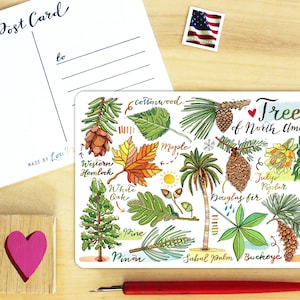 Post Card
to
MADE BY
Trees
of North Am
Cottonwood
Maple
Western
Hemlock
White
Oak
Tulip
Poplar
Douglas fir
Pine
Pinon
Sabal Palm
Buckeye